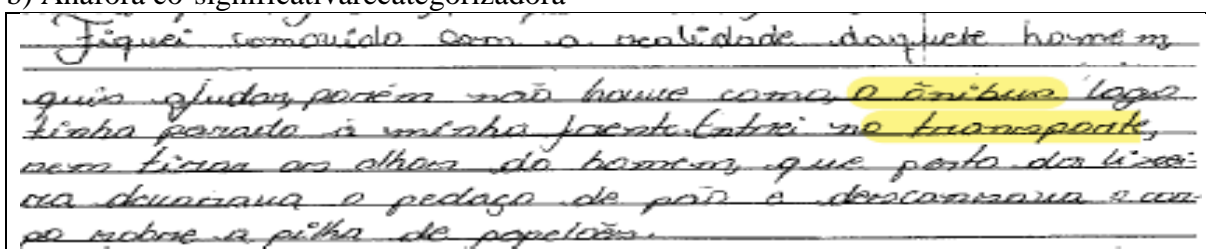 b) Anáfora co-significativarecategorizadora
Fiquei comovido com a realidade daquele homem
quis ajudar, porém não houve como, o ônibus logo
tinha parado à minha frente. Entrei no transporte,
sem tirar os olhos do homem, que perto da lixei-
ra devorava o pedaço de pão e descansava o cor-
po sobre a pilha de papelões.